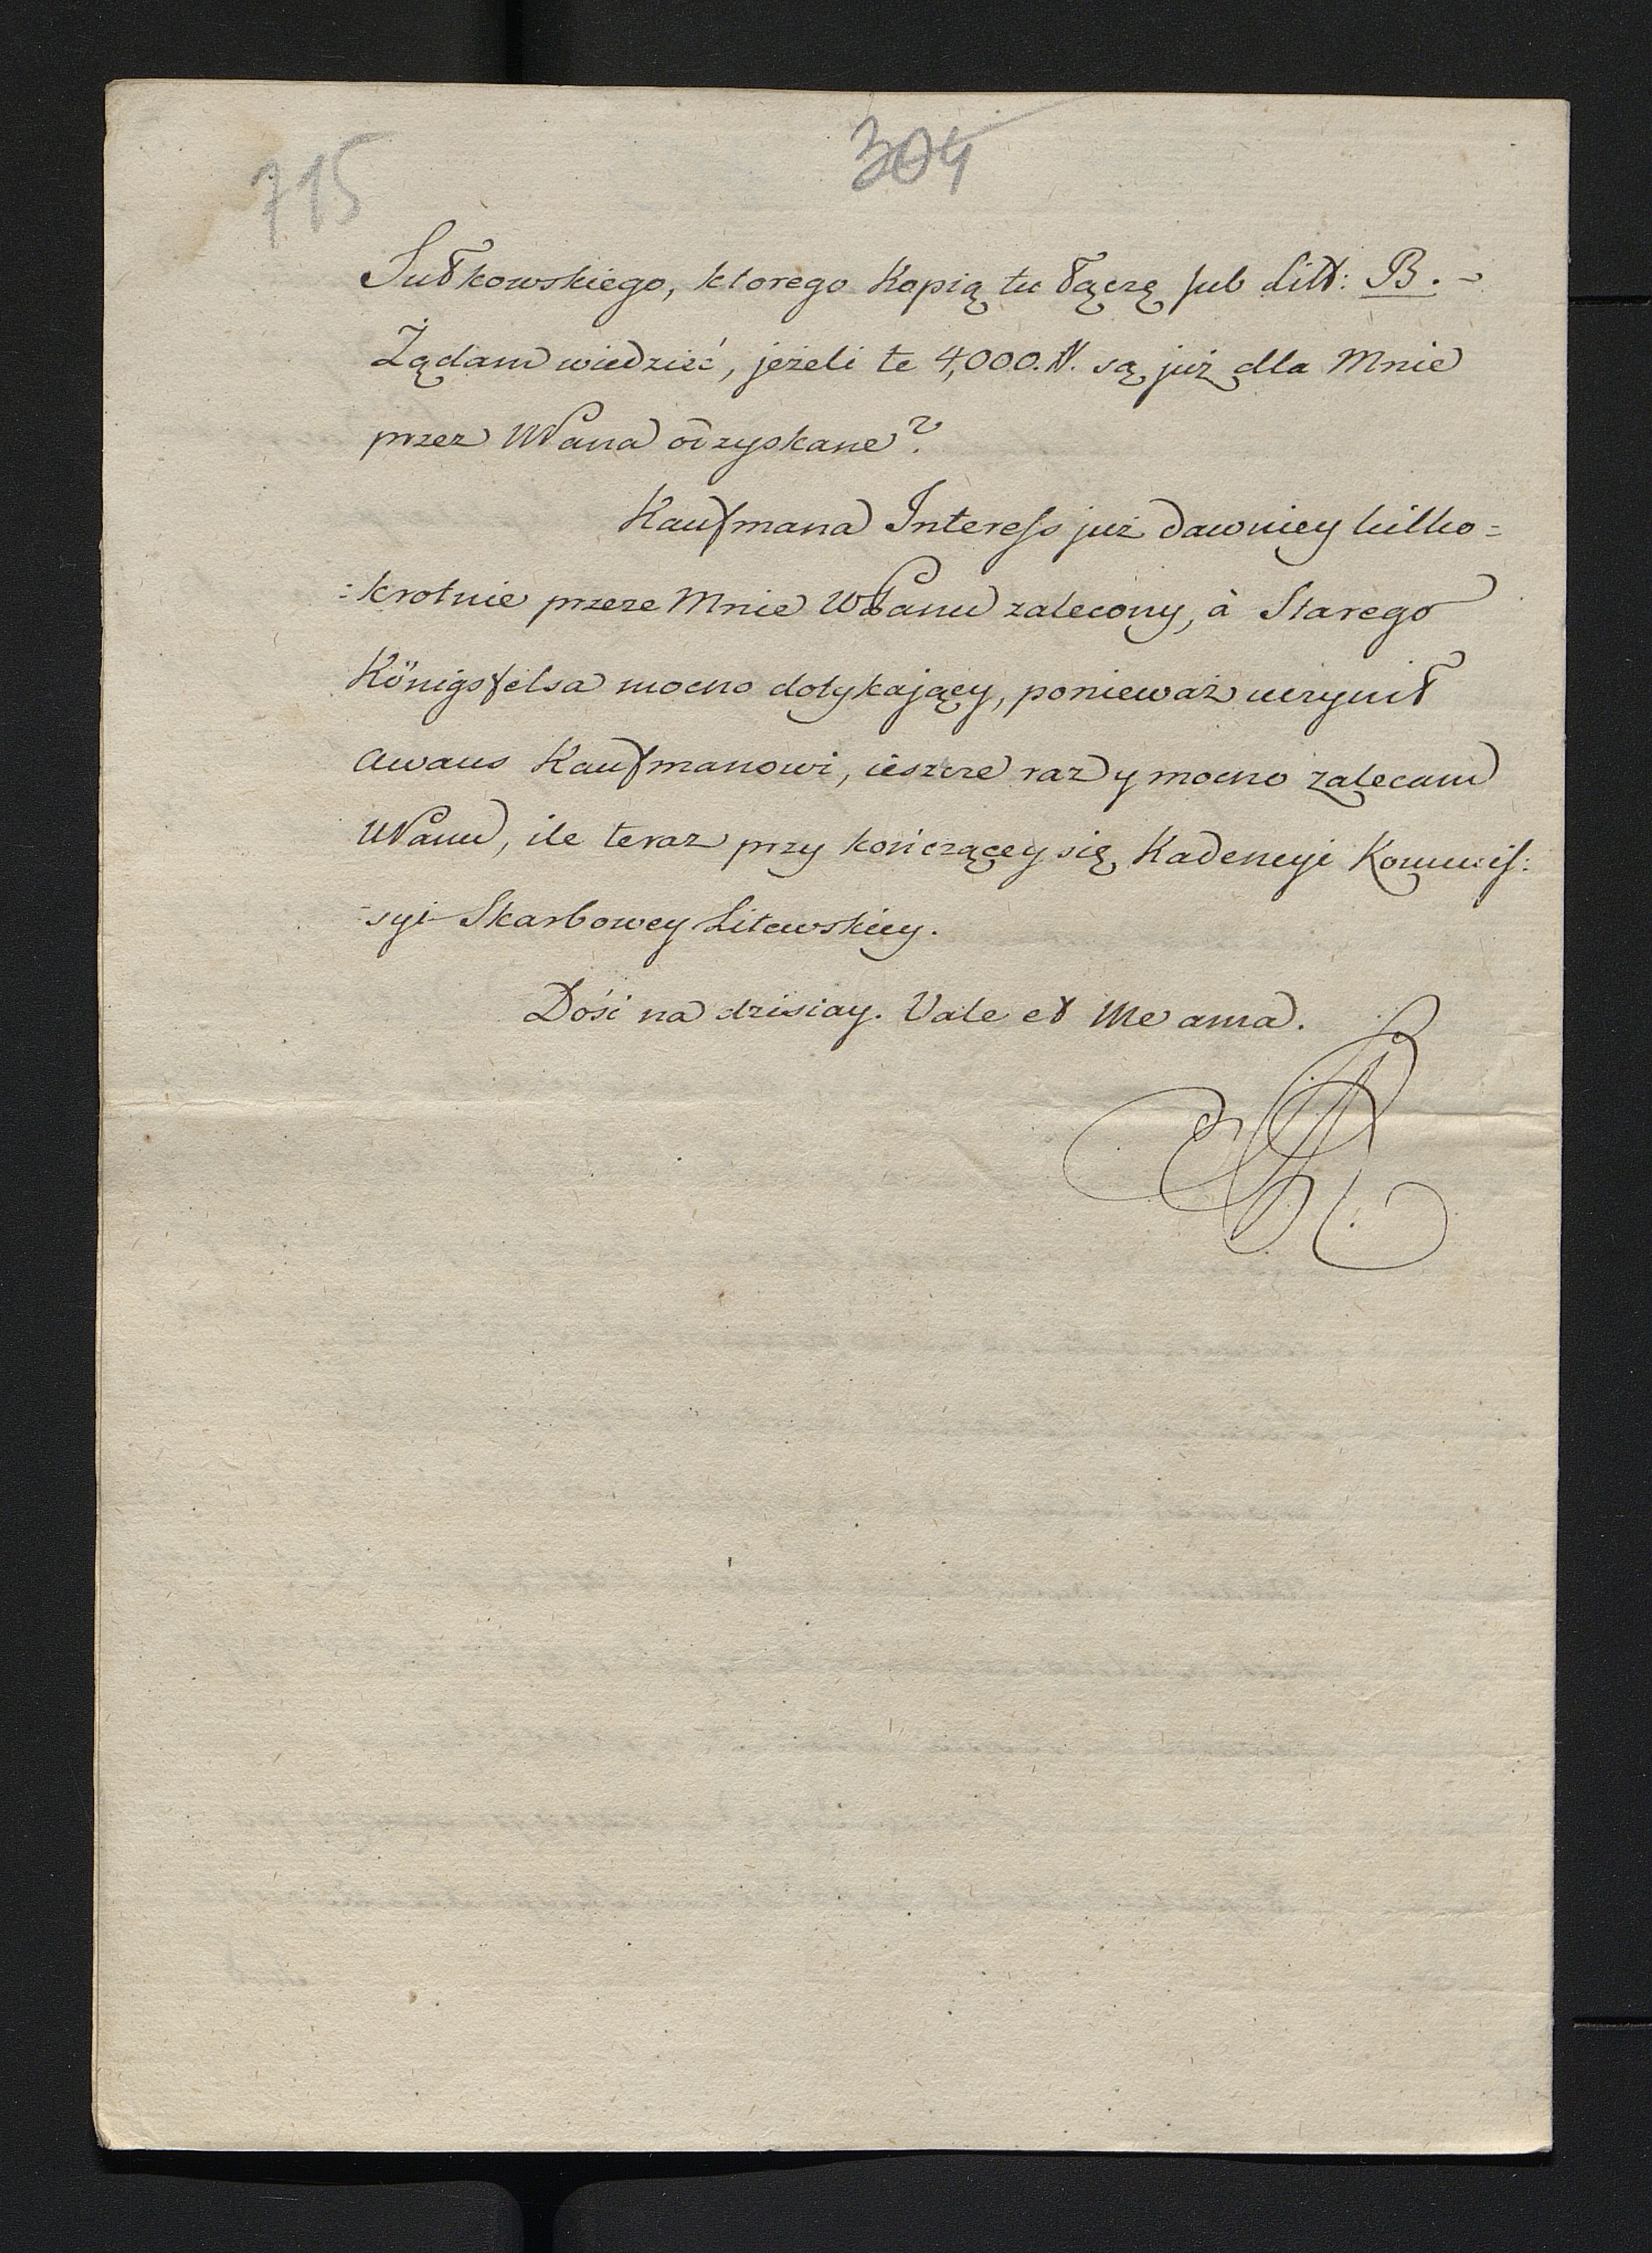 715
304
Sułkowskiego, ktorego Kopią tu łączę sub Litt: B. -
Żądam wiedzieć, jeżeli te 4,000. # są już dla Mnie
przez WPana odzyskane?
Kaufmana Interess już dawniey kilko=
=krotnie przeze Mnie WPanu zalecony, à Starego
Königsfelsa mocno dotykający, ponieważ uczynił
awans Kaufmanowi, ieszcze raz y mocno zalecam
WPanu, ile teraz przy kończącey się Kadencyi Kommis:
-syi Skarbowey Litewskiey.
Dość na dzisiay. Vale et Me ama.